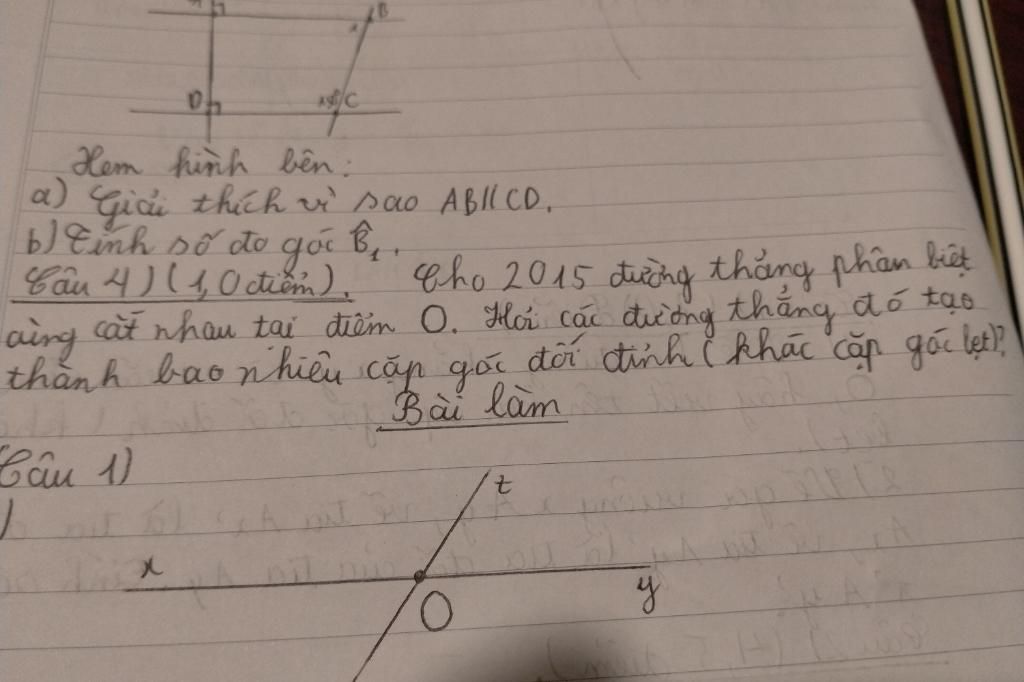 B
D
C
Xem hình bên:
a) Giải thích vì sao AB//CD.
b) Tính số đo góc B̂₁.
Câu 4) (1,0 điểm). Cho 2015 đường thẳng phân biệt
cùng cắt nhau tại điểm O. Hỏi các đường thẳng đó tạo
thành bao nhiêu cặp góc đối đỉnh (khác cặp góc bẹt)?
Bài làm
Câu 1)
t
x
y
O